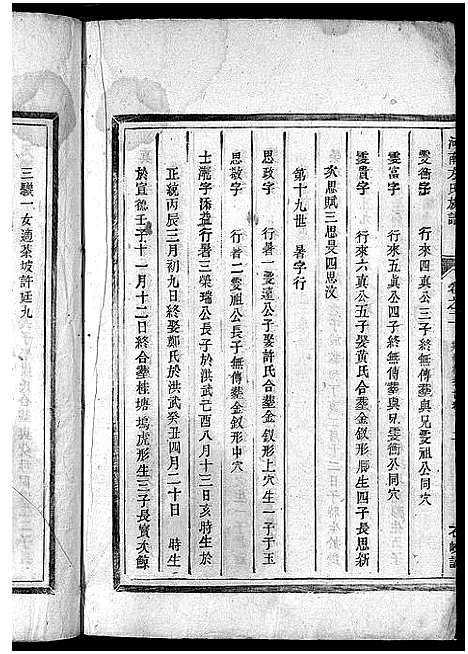 河南方氏族譜
雯衢字 行來四真公三子終無傳塟與兄雯衝公同穴
雯富字 行來五真公四子終無傳塟與兄雯衝公同穴
雯貴字 行來六真公五子娶黃氏合塟金釵形腳生四子長思新
次思賦三思旻四思汶
第十九世 暑字行
思政字 行暑一雯遠公子娶許氏合塟金釵形上穴生一子于玉
思敬字 行暑二雯祖公長子終無傳塟金釵形中穴
士瀧字添益行暑三榮瑞公長子於洪武己酉八月十三日亥時生於
正統丙辰三月初九日終娶鄭氏於洪武癸丑四月二十日 時生
於宣德壬子十一月十二日終合塟桂塘塢虎形生三子長寶次鯨
三驥一女適茶坡許廷九